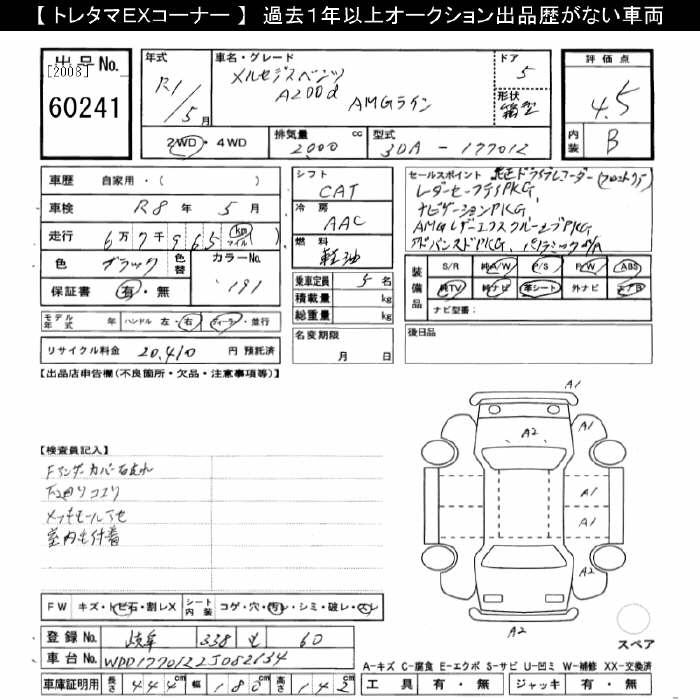 【 トレタマEXコーナー 】 過去1年以上オークション出品歴がない車両
出品No.
[2008]
60241
年式
R1/5月
車名・グレード
メルセデスベンツ
A200d
AMGライン
ドア
5
形状
箱型
評価点
4.5
内装
B
2WD・4WD
排気量 cc
2000
型式
3DA - 177012
車歴 自家用・( )
車検 R8年 5月
走行 6万7千965 km マイル
色 ブラック 色替 カラーNo. 191
保証書 有・無
モデル年式 年 ハンドル 左・右 ディーラー・並行
リサイクル料金 20,410 円 預託済
シフト
CAT
冷房
AAC
燃料
軽油
乗車定員 5名
積載量 kg
総重量 kg
名変期限
月 日
セールスポイント 純正ドライブレコーダー(フロントリア)
レーダーセーフティPKG,
ナビゲーションPKG,
AMGレザーエクスクルーシブPKG,
アドバンスドPKG, パノラミックS/R
装備品
S/R 純A/W P/S P/W ABS
純TV 純ナビ 革シート 外ナビ エアB
ナビ型番:
後日品
【出品店申告欄(不良箇所・欠品・注意事項等)】
【検査員記入】
Fアンダーカバー右左れ
下回りコスリ
メッキモール下セ
室内毛付着
FW キズ・トビ石・割レX シート内装 コゲ・穴・汚レ・シミ・破レ・スレ
登録No. 岐阜 338 も 60
車台No. WDD1770122J082134
車庫証明用 長さ 444cm 幅 180cm 高さ 142cm
A1
A1
A2
A1
A1
A2
A2
スペア
A-キズ C-腐食 E-エクボ S-サビ U-凹ミ W-補修 XX-交換済
工具 有・無 ジャッキ 有・無